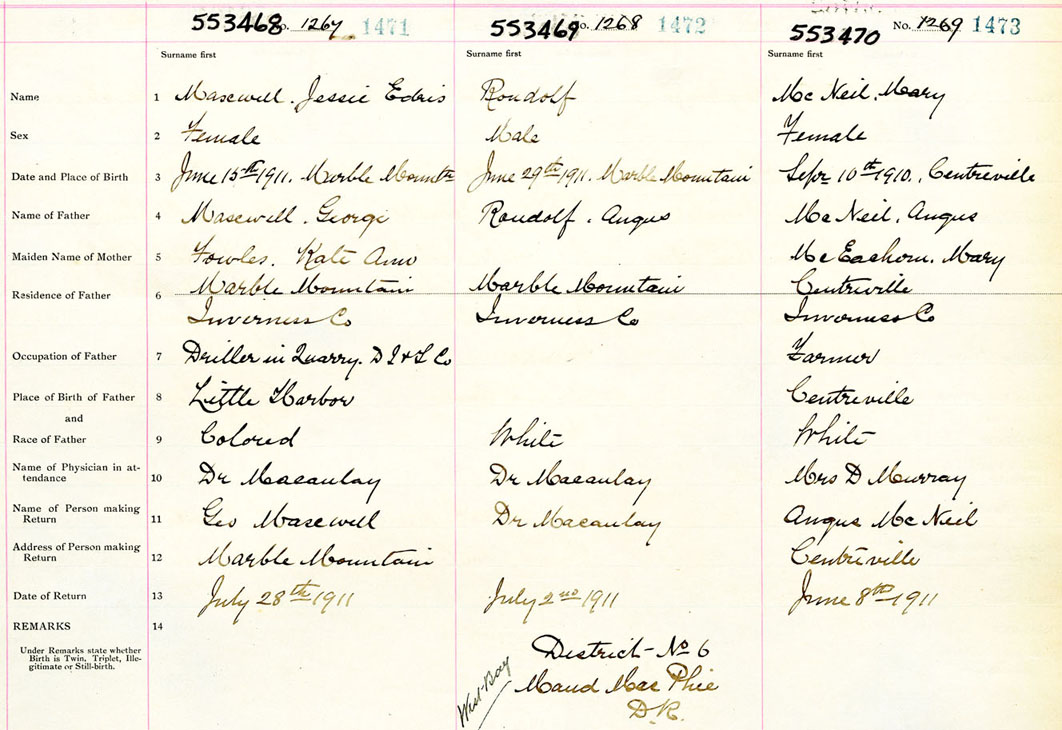 553468 No. 1267 1471 553469 No. 1268 1472 553470 No. 1269 1473
Surname first Surname first Surname first
Name 1 Maxwell. Jessie Edris Roudolf Mc Neil. Mary
Sex 2 Female Male Female
Date and Place of Birth 3 June 15th 1911. Marble Mountn June 29th 1911. Marble Mountain Sepr 10th 1910. Centreville
Name of Father 4 Maxwell. George Roudolf. Angus Mc Neil. Angus
Maiden Name of Mother 5 Fowles. Kate Ann Mc Eachern. Mary
Residence of Father 6 Marble Mountain Marble Mountain Centreville
Inverness Co Inverness Co Inverness Co
Occupation of Father 7 Driller in Quarry. D I & S Co Farmer
Place of Birth of Father 8 Little Harbor Centreville
and
Race of Father 9 Colored White White
Name of Physician in at-
tendance 10 Dr Macaulay Dr Macaulay Mrs D Murray
Name of Person making
Return 11 Geo Maxwell Dr Macaulay Angus Mc Neil
Address of Person making
Return 12 Marble Mountain Centreville
Date of Return 13 July 28th 1911 July 2nd 1911 June 8th 1911
REMARKS 14
Under Remarks state whether
Birth is Twin, Triplet, Ille-
gitimate or Still-birth.
District No 6
West Bay Maud Mac Phie
D.R.